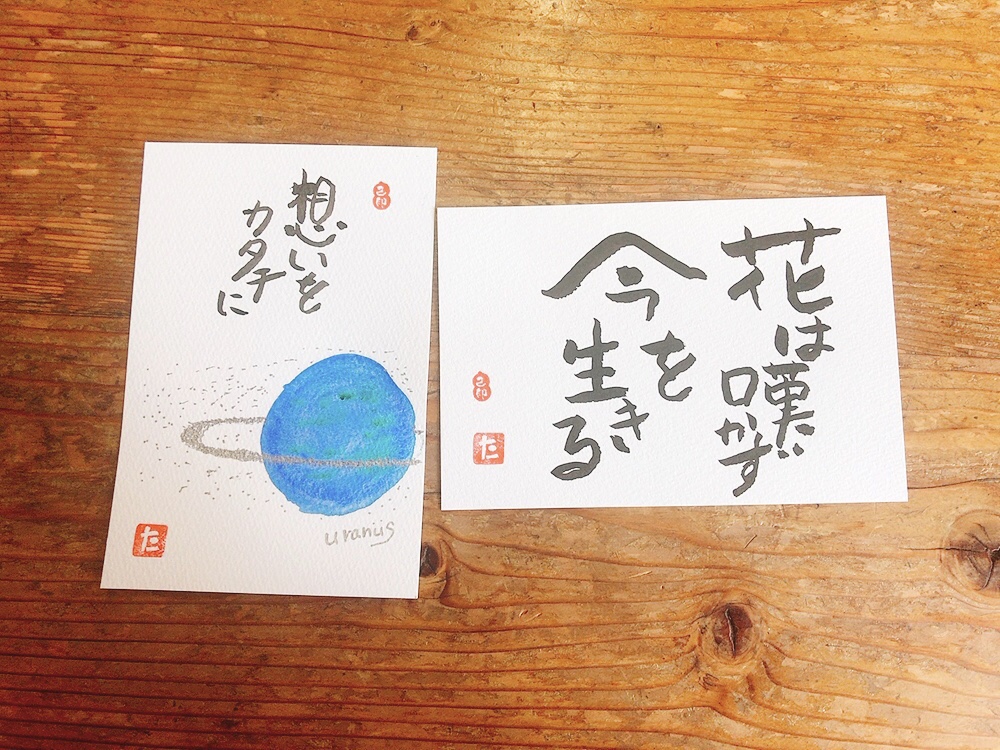 想いを
カタチに
uranus
た
花は
嘆かず
今を
生きる
た